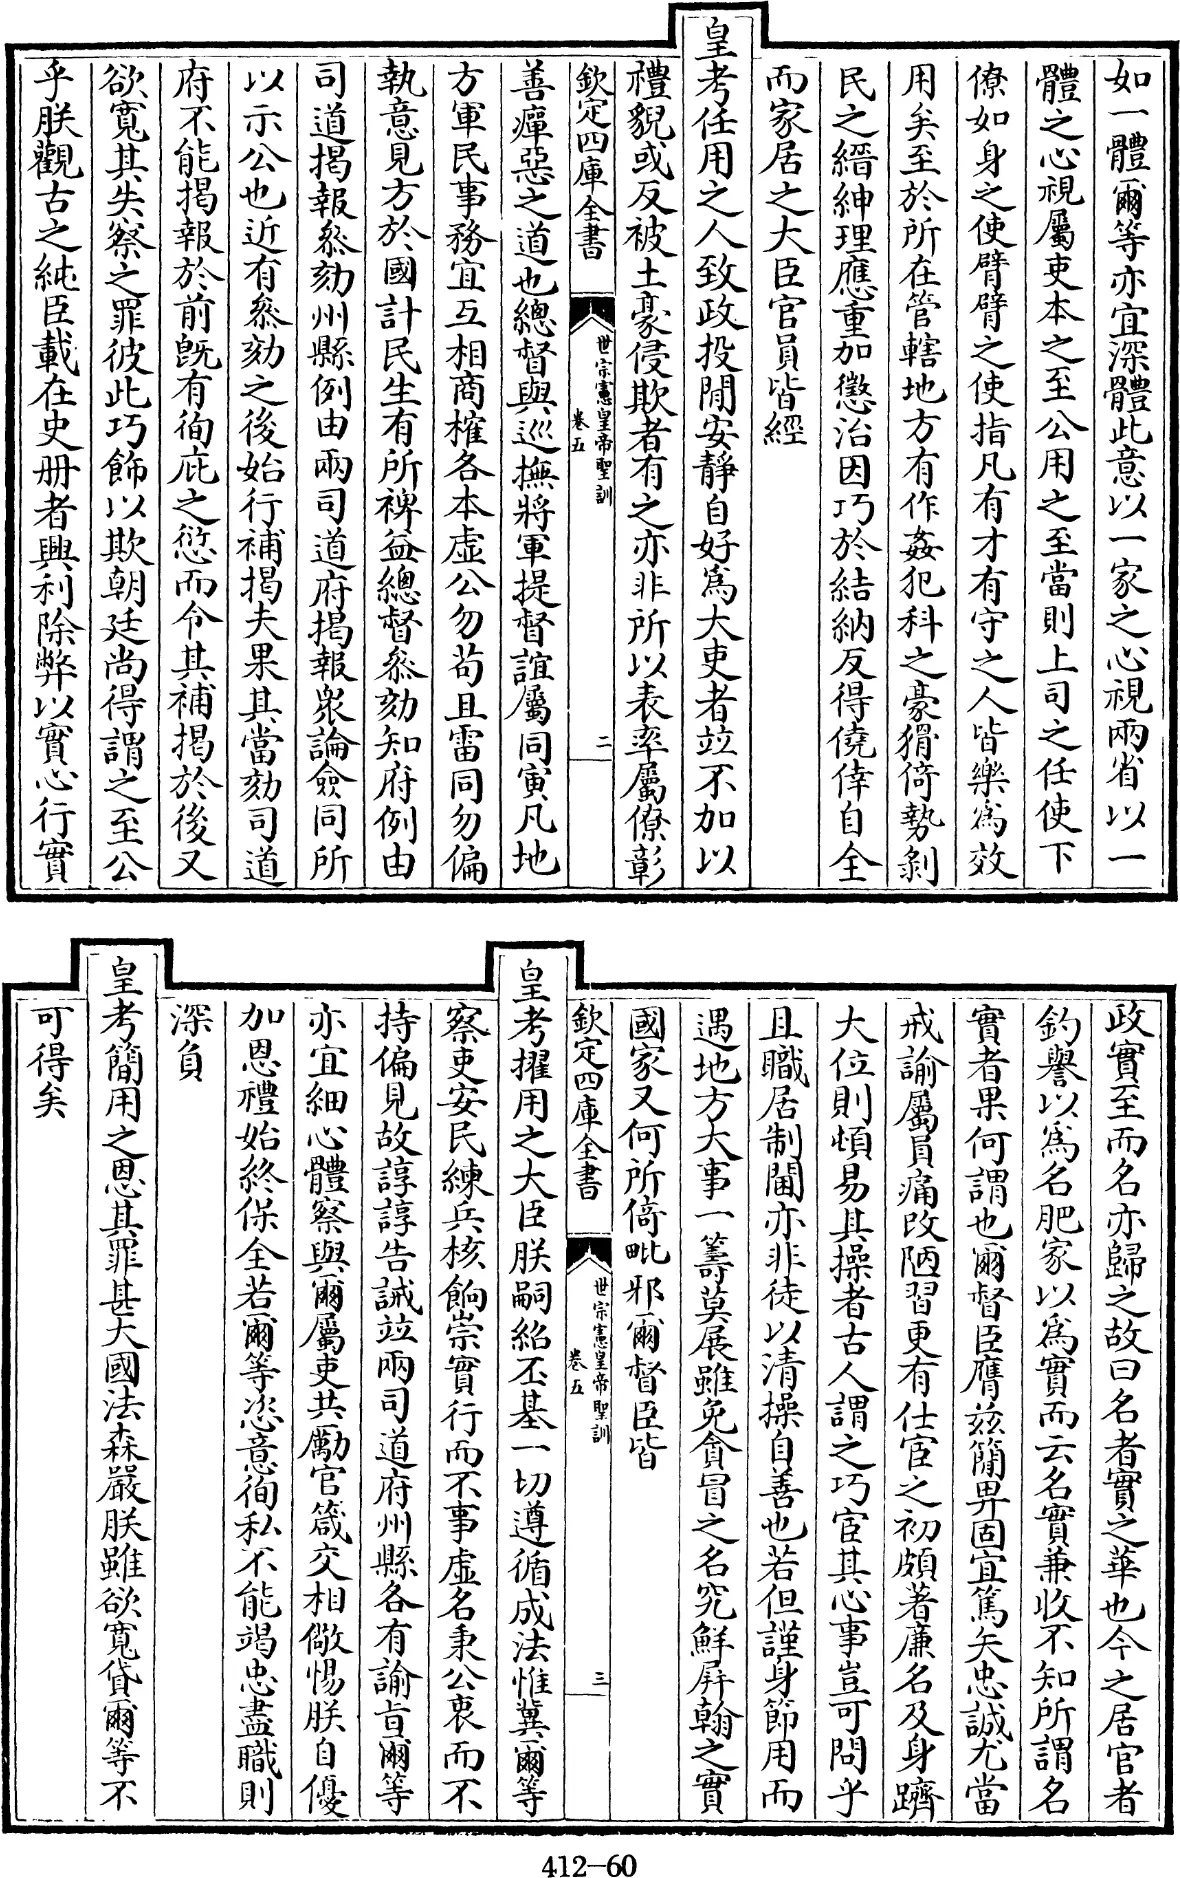 如一體爾等亦宜深體此意以一家之心視兩省以一
體之心視屬吏本之至公用之至當則上司之任使下
僚如身之使臂臂之使指凡有才有守之人皆樂為效
用矣至於所在管轄地方有作姦犯科之豪猾倚勢剝
民之縉紳理應重加懲治因巧於結納反得僥倖自全
而家居之大臣官員皆經
皇考任用之人致政投閒安靜自好為大吏者竝不加以
禮貌或反被土豪侵欺者有之亦非所以表率屬僚彰
欽定四庫全書
世宗憲皇帝聖訓
卷五
二
善癉惡之道也總督與巡撫將軍提督誼屬同寅凡地
方軍民事務宜互相商榷各本虛公勿苟且雷同勿偏
執意見方於國計民生有所裨益總督叅劾知府例由
司道揭報叅劾州縣例由兩司道府揭報衆論僉同所
以示公也近有叅劾之後始行補揭夫果其當劾司道
府不能揭報於前旣有徇庇之愆而令其補揭於後又
欲寬其失察之罪彼此巧飾以欺朝廷尚得謂之至公
乎朕觀古之純臣載在史册者興利除弊以實心行實
政實至而名亦歸之故曰名者實之華也今之居官者
釣譽以為名肥家以為實而云名實兼收不知所謂名
實者果何謂也爾督臣膺茲簡畀固宜篤矢忠誠尤當
戒諭屬員痛改陋習更有仕宦之初頗著廉名及身躋
大位則頓易其操者古人謂之巧宦其心事豈可問乎
且職居制閫亦非徒以清操自善也若但謹身節用而
遇地方大事一籌莫展雖免貪冒之名究鮮屛翰之實
國家又何所倚毗邪爾督臣皆
欽定四庫全書
世宗憲皇帝聖訓
卷五
三
皇考擢用之大臣朕嗣紹丕基一切遵循成法惟冀爾等
察吏安民練兵核餉崇實行而不事虛名秉公衷而不
持偏見故諄諄告誡竝兩司道府州縣各有諭旨爾等
亦宜細心體察與爾屬吏共勵官箴交相儆惕朕自優
加恩禮始終保全若爾等恣意徇私不能竭忠盡職則
深負
皇考簡用之恩其罪甚大國法森嚴朕雖欲寬貸爾等不
可得矣
412-60